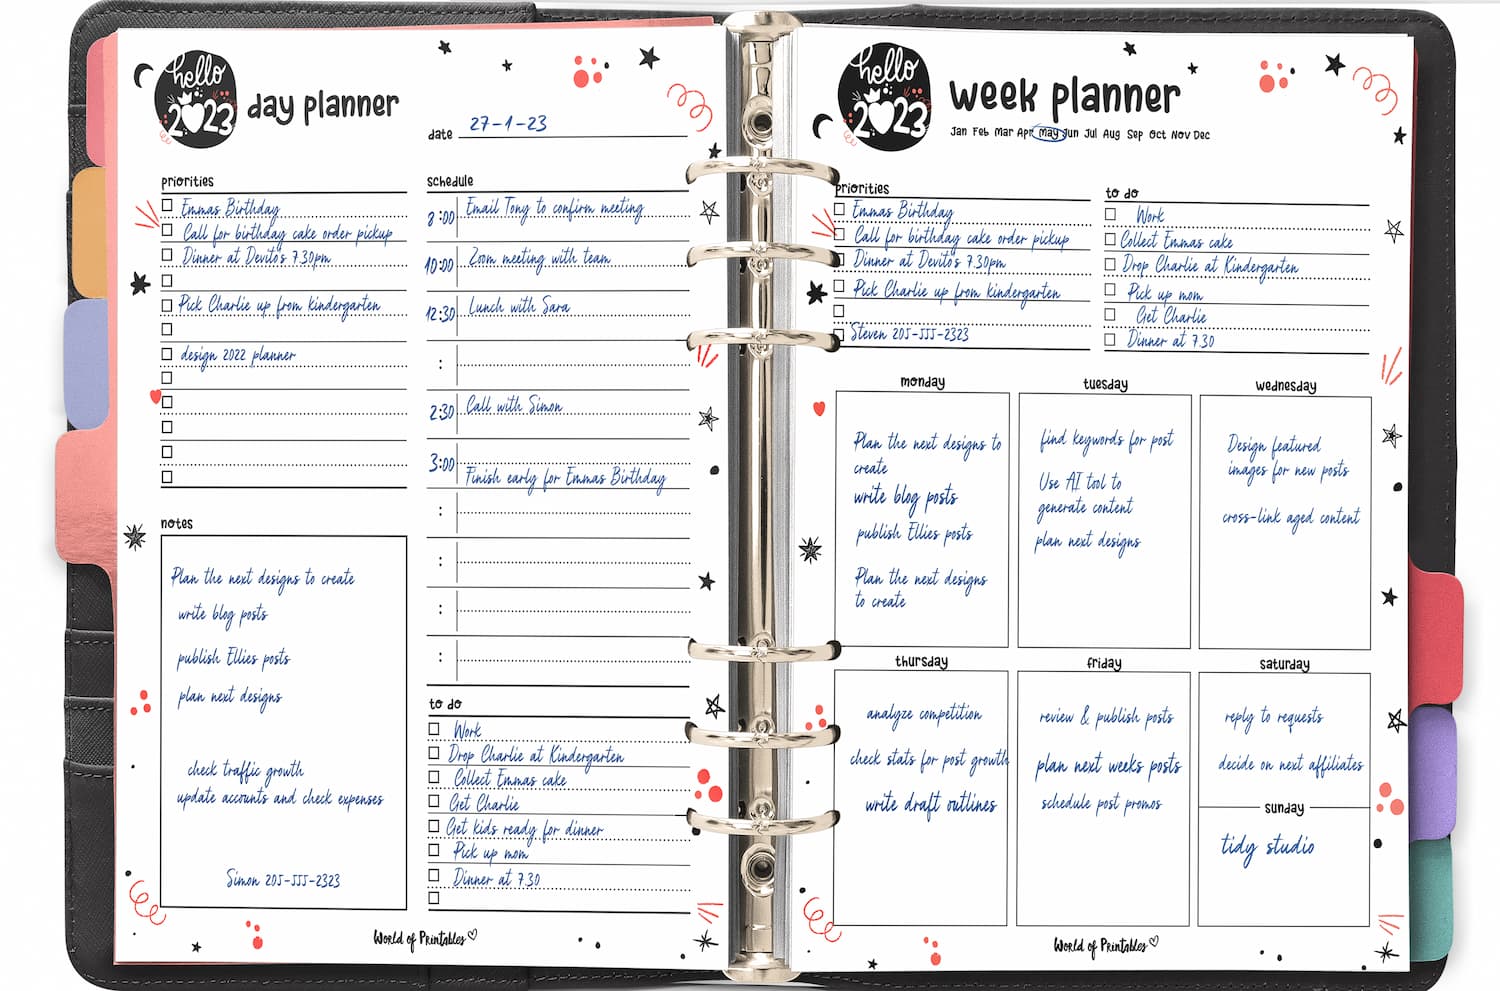 hello
2023
day planner
date 27-1-23
priorities
Emmas Birthday
Call for birthday cake order pickup
Dinner at Devito's 7.30pm
Pick Charlie up from kindergarten
design 2022 planner
notes
Plan the next designs to create
write blog posts
publish Ellies posts
plan next designs
check traffic growth
update accounts and check expenses
Simon 205-555-2323
schedule
8:00 Email Tony to confirm meeting
10:00 Zoom meeting with team
12:30 Lunch with Sara
:
2:30 Call with Simon
3:00
Finish early for Emmas Birthday
:
:
:
:
to do
Work
Drop Charlie at Kindergarten
Collect Emmas cake
Get Charlie
Get kids ready for dinner
Pick up mom
Dinner at 7.30
World of Printables
hello
2023
week planner
Jan Feb Mar Apr May Jun Jul Aug Sep Oct Nov Dec
priorities
Emmas Birthday
Call for birthday cake order pickup
Dinner at Devito's 7.30pm
Pick Charlie up from kindergarten
Steven 205-555-2323
to do
Work
Collect Emmas cake
Drop Charlie at Kindergarten
Pick up mom
Get Charlie
Dinner at 7.30
monday
Plan the next designs to
create
write blog posts
publish Ellies posts
Plan the next designs
to create
tuesday
find keywords for post
Use AI tool to
generate content
plan next designs
wednesday
Design featured
images for new posts
cross-link aged content
thursday
analyze competition
check stats for post growth
write draft outlines
friday
review & publish posts
plan next weeks posts
schedule post promos
saturday
reply to requests
decide on next affiliates
sunday
tidy studio
World of Printables